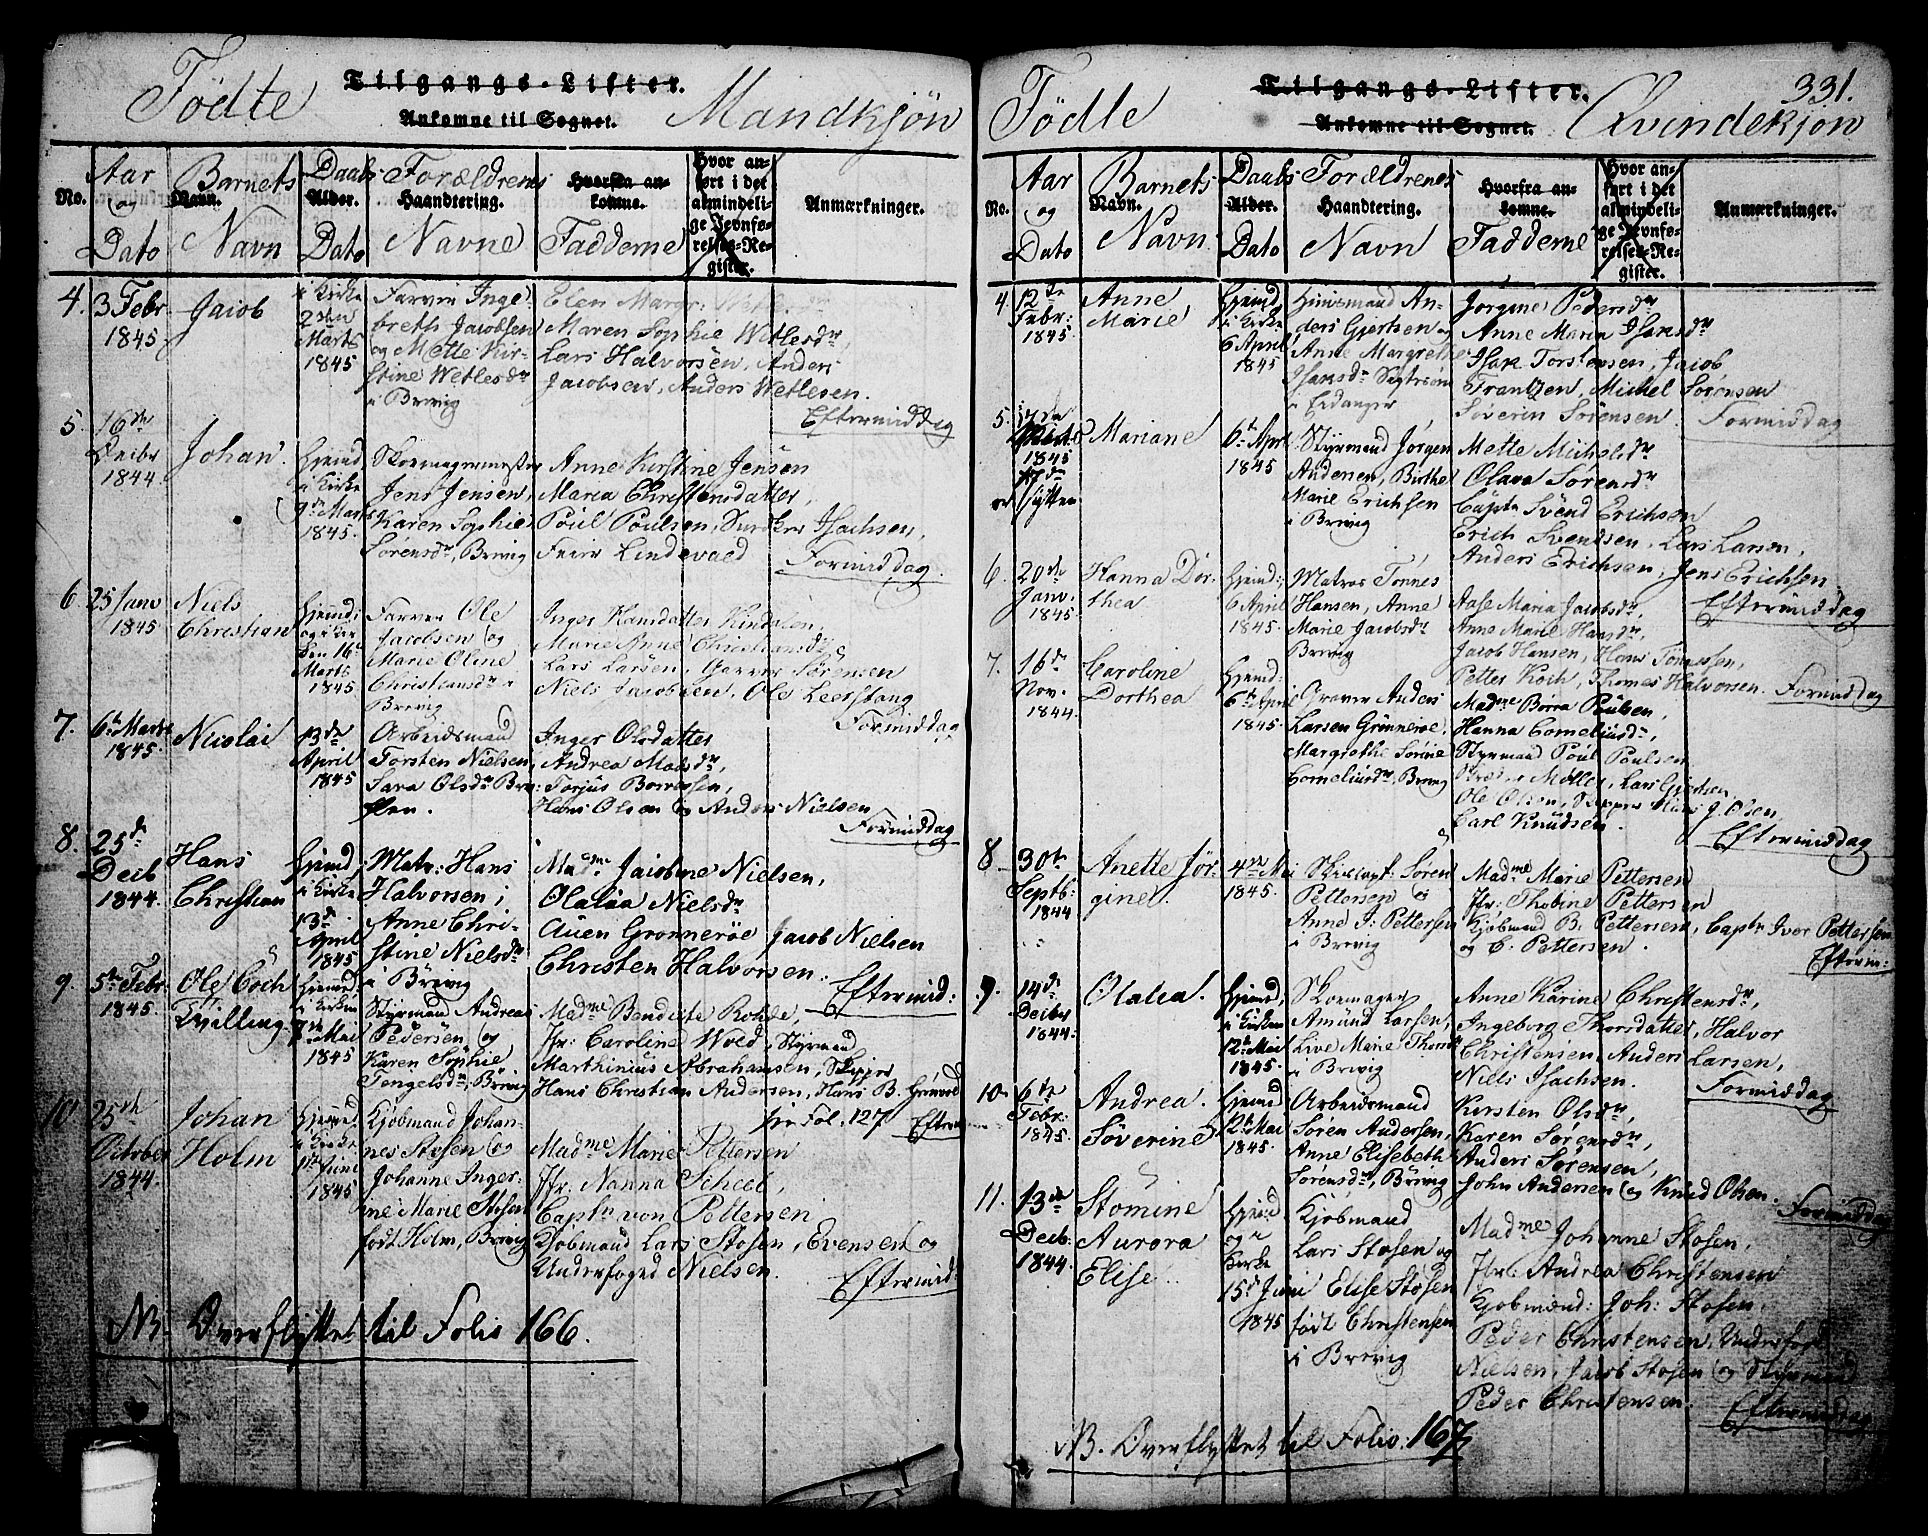 Fødte
Tilgangs-Lister.
Ankomne til Sognet.
Mandkjøn
No.
Aar og Dato
Barnets Navn
Navn.
Daabs Dato
Alder.
Forældrenes Navne
Haandtering.
Hvorfra ankomne.
Fadderne
Hvor anført i det almindelige Jevnførelses-Register.
Anmærkninger.
4. 3 Febr 1845
Jacob
i Kirke 2den Marts 1845
Farver Ingebreth Jacobsen og Mette Kirstine Wetlesdr i Brevig
Elen Margr:
Maren Sophie Wetlesdr,
Lars Halvorsen, Anders
Jacobsen, Anders Wetlesen.
Eftermiddag
5. 16de Decbr 1844
Johan
Hjemd i Kirke 9de Marts 1845.
Skomagermester
Jens Jensen,
Karen Sophie
Sørensdr, Brevig
Anne Kirstine Jensen
Maria Christensdatter,
Poul Poulsen, Isachsen,
Lindevald
Formiddag.
6. 25 Janv 1845
Niels Christian
Hjemd: og i Kir den 16de Marts 1845
Farver Ole
Jacobsen og
Marie Oline
Christiansdr
Brevig
Inger Hansdatter
Marie Anne Christiansdr,
Lars Larsen, Sørensen
Niels Jacobsen, Ole Leerstang
Formiddag
7. 6te Marts 1845.
Nicolai
13de April 1845
Arbeidsmand
Torsten Nielsen,
Sara Olsdr
Inger Olsdatter
Andrea Madsdr,
Torjus
Hans Olsen og Anders Nielsen
Formiddag
8. 25de Decb 1844.
Hans Christian
Hjemd, i Kirke 13de April 1845
Matr: Hans
Halvorsen,
Anne Christine Nielsdr
i Brevig
Madme Jacobine Nielsen,
Olalia Nielsdr
Auen Grønnerøe Jacob Nielsen
Christen Halvorsen.
Eftermid:
9. 5te Febr 1845.
Ole Coch
Tvilling
Hjemd i Kirken 7de Mai 1845
Styrmand Andreas
Pedersen, og
Karen Sophie
Tengelsdr, Brevig
Madme Bendicte Rohde,
Jfr: Caroline Wold, Styrmand
Marthinius Abrahamsen, Skipper
Hans Christian Andersen, Hans B.
see Fol. 127
Efterm
10. 25de October 1844.
Johan Holm
Hjemd, i Kirke Juni 1845
Kjøbmand Johannes Stosen og
Johanne Ingerine Marie Stosen
født Holm, Brevig
Madme Marie Pettersen
Jfr. Nanna Scheel,
Captn von Pettersen
Kjøbmand Lars Stosen, Evensen og
Underfoged Nielsen.
Eftermid:
NB. Overflyttet til Folio 166.
331.
Fødte
Tilgangs-Lister.
Ankomne til Sognet.
Qvindekjøn
No.
Aar og Dato
Barnets Navn
Navn.
Daabs Dato
Alder.
Forældrenes Navn
Haandtering.
Hvorfra ankomne.
Fadderne
Hvor anført i det almindelige Jevnførelses-Register.
Anmærkninger.
4. 12te Febr: 1845
Anne Marie
Hjemd, i Kirke 6 April 1845
Huusmand Anders Gjertsen og
Anne Margrethe
Isaksdr
i Eidanger
Jørgine Pedersdr
Anne Maria Isaksdr
Isak Torstensen, Jacob
Frantzen, Michel Sørensen
Søverin Sørensen.
Formiddag
5. 17de 1845
Mariane
6te Apr 1845
Styrmand Jørgen
Andersen, Birthe
Marie Erichsen
i Brevig
Mette Michelsdr
Olava Sørensdr
Captn Svend Erichsen
Erich Svendsen, Lars Larsen,
Anders Erichsen, Jens Erichsen
Eftermiddag
6. 20de Janv. 1845
Hanna Dorthea
Hjemd: 6 April 1845.
Matros Tønnes
Hansen, Anne
Marie Jacobsdr
Brevig
Aase Maria Jacobsdr,
Anne Marie Hansdr,
Jacob Hansen, Hans Tønnessen,
Petter Koch, Thomas Halvorsen.
Formiddag
7. 16de Nov. 1844.
Caroline Dorthea
Hjemd: 6te April 1845.
Graver Anders
Larsen Grønnerøe,
Margrethe Sørine
Corneliusdr, Brevig
Madme Børra Poulsen,
Hanna Corneliusdr,
Styrmand Poul Poulsen
Møller, Lars Gjertsen,
Ole Olsen, Skipper Hans J. Olsen,
Carl Knudsen.
Eftermiddag
8. 30te Septb: 1844
Anette Jørgine.
4de Mai 1845.
Søren
Pettersen og
Anne J. Pettersen
i Brevig
Madme Marie Pettersen
Jfr: Thobine Pettersen
Kjøbmand B. Pettersen, Captn Iver Pettersen
og C. Pettersen.
Efterm:
9. 14de Decbr 1844.
Olalea.
Hjemd, i Kirken 12te Mai 1845.
Skomager
Amund Larsen,
Live Marie Thorsdr
i Brevig
Anne Karine Christensdr,
Ingeborg Thorsdatter, Halvor
Christensen, Anders Larsen,
Niels Isachsen.
Formiddag
10. 6te Febr: 1845.
Andrea Søverine
Hjemd 12te Mai 1845.
Arbeidsmand
Søren Andersen,
Anne Elisebeth
Sørensdr, Brevig
Kirsten Olsdr,
Karen Sørensdr,
Anders Sørensen,
John Andersen og Knud Olsen.
Formiddag
11. 13de Decb: 1844.
Stomine Aurora Elise.
Hjemd og i Kirke 15de Juni 1845
Kjøbmand
Lars Stosen og
Elise Stosen
født Christensen
i Brevig
Madme Johanne Stosen,
Jfr: Andrea Christensen
Kjøbmænd: Joh: Stosen,
Peder Christensen, Underfoged
Nielsen, Jacob Stosen og Styrmand
Peder Christensen.
Eftermiddag
NB. Overflyttet til Folio: 167